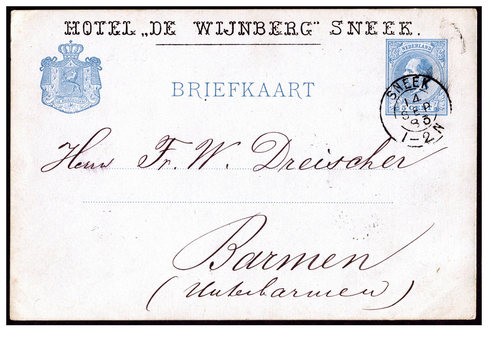 HOTEL „DE WIJNBERG" SNEEK.
NEDERLAND
BRIEFKAART
SNEEK
14
SEP
83
1-2N
Herrn Fr. W. Dreischer
Barmen
(Unterbarmen)